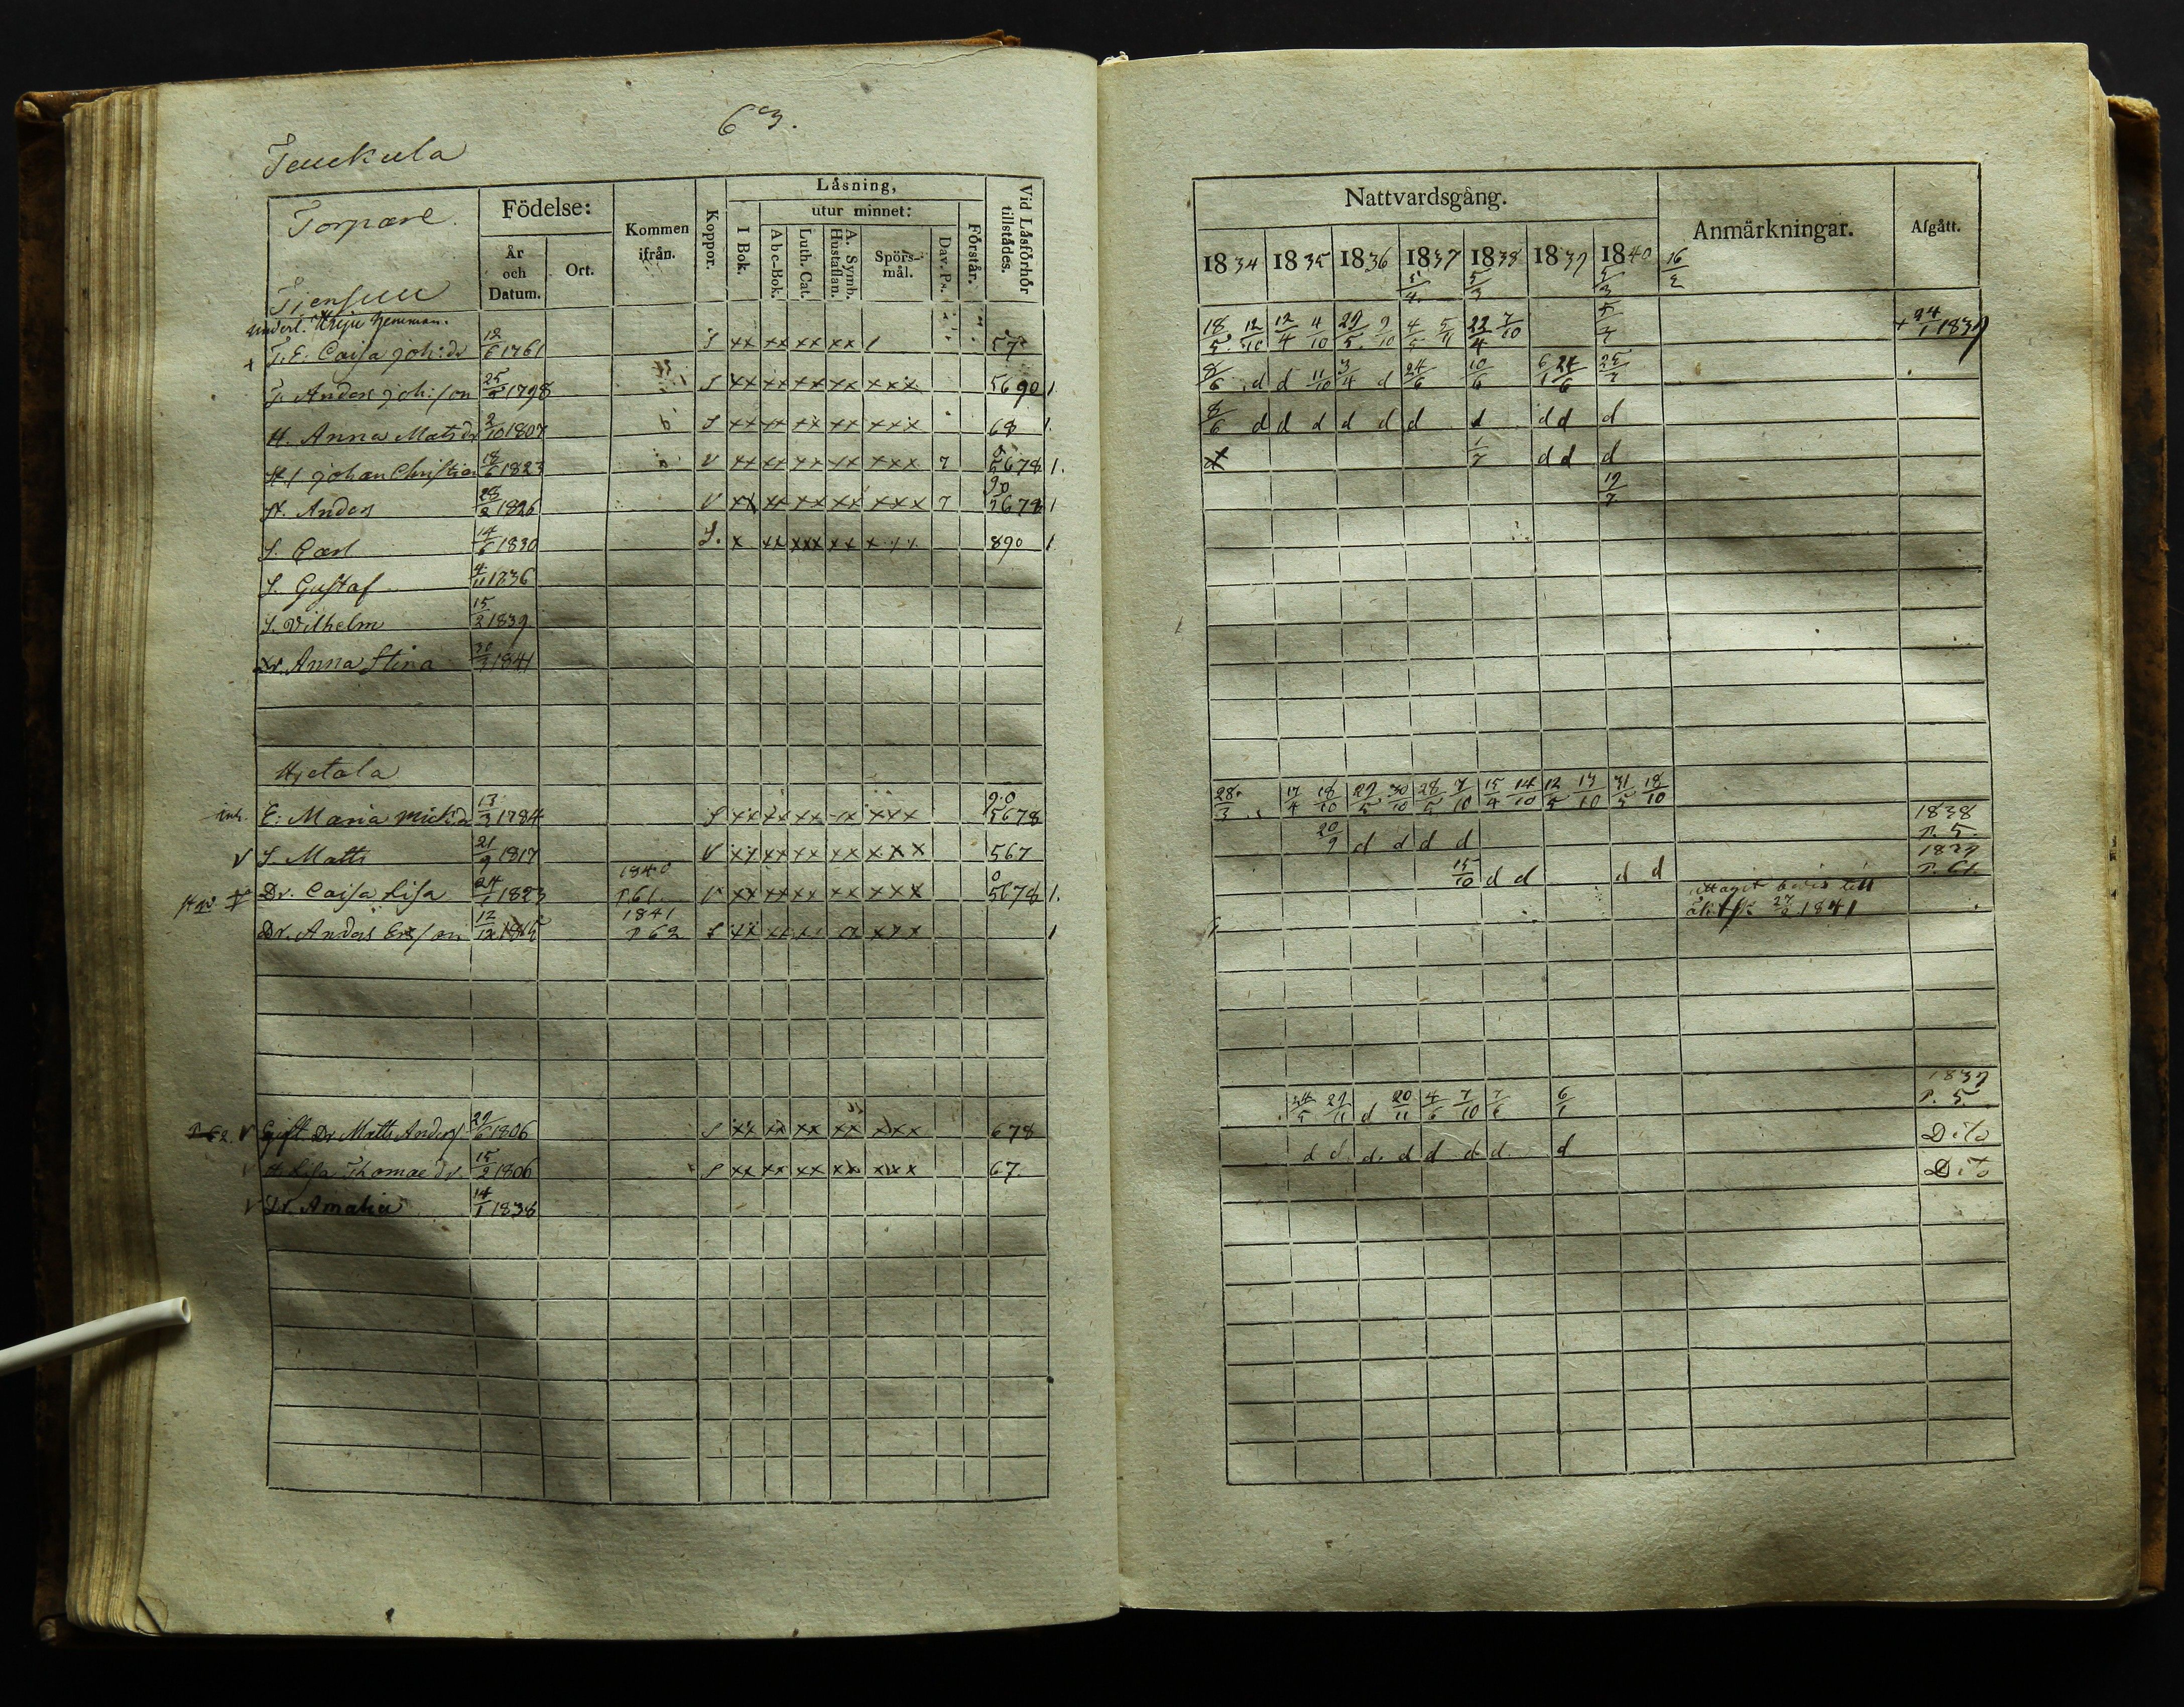 63.
Jeuckula
Torpare
Födelse:
År och Datum.
Ort.
Kommen ifrån.
Koppor.
Läsning,
I Bok.
utur minnet:
Abc-Bok.
Luth. Cat.
A. Symb. Hustaflan.
Spörs-mål.
Dav. Ps.
Förstår.
Vid Läsförhör tillstädes.
Nattvardsgång.
1834 1835 1836 1837 1838 1839 1840
5/4 5/3 5/3 16/2
Anmärkningar.
Afgått.
T.E. Caisa Joh:dr 12/6 1761 S xx xx xx xx / 57 18/5 12/10 12/4 4/10 29/5 9/10 4/5 5/11 22/4 7/10 + 24/1 1839
T. Anders Joh:son 25/2 1798 S xx xx xx xx xxx 5690 1 8/6 d d 11/10 3/4 d 24/6 10/6 6/1 24/6
H. Anna Matsdr 2/10 1807 S xx xx xx xx xxx 68 1. 8/6 d d d d d d d d d d
Johan Christian 18/6 1823 V xx xx xx xx xxx 7 5678 1. d d d
Anders 28/2 1826 V xx xx xx xx xxx 7 90 5678 1 19/7
S. Carl 14/6 1830 S. x xx xxx xx 890 1
S. Gustaf 4/11 1836
S. Vilhelm 15/2 1839
Dr. Anna Stina 30/ 1841
Hjetala
inh. E: Maria Mickdr 13/3 1784 S xx xx xx xx xxx 90 5678 28/3 17/4 18/10 29/5 30/10 28/5 7/10 15/4 14/10 12/5 13/10 31/5 18/10
V S. Matts 21/9 1817 V xx xx xx xx xxx 567 20/9 d d d d 1838 p. 5.
Dr. Caisa Lisa 24/1 1823 1840 p 61. V xx xx xx xx xxx 0 5678 1. 15/10 d d d d 1839 p. 61.
uttagit bevis till
1841
Dr. Anders Er:son 12/12 1815 1841 p 62 S xx xx xx xx xxx 1
p 62. V Gift. Dr Matts Anders 29/6 1806 S xx xx xx xx xxx 678 24/5 29/11 d 20/11 4/6 7/10 7/6 6/1 1839 p. 5
V H. Lisa Thomaedr. 15/2 1806 S xx xx xx xx xxx 67. d d. d. d d d d. d Dito
V Dr. Amalia 14/1 1838 Dito